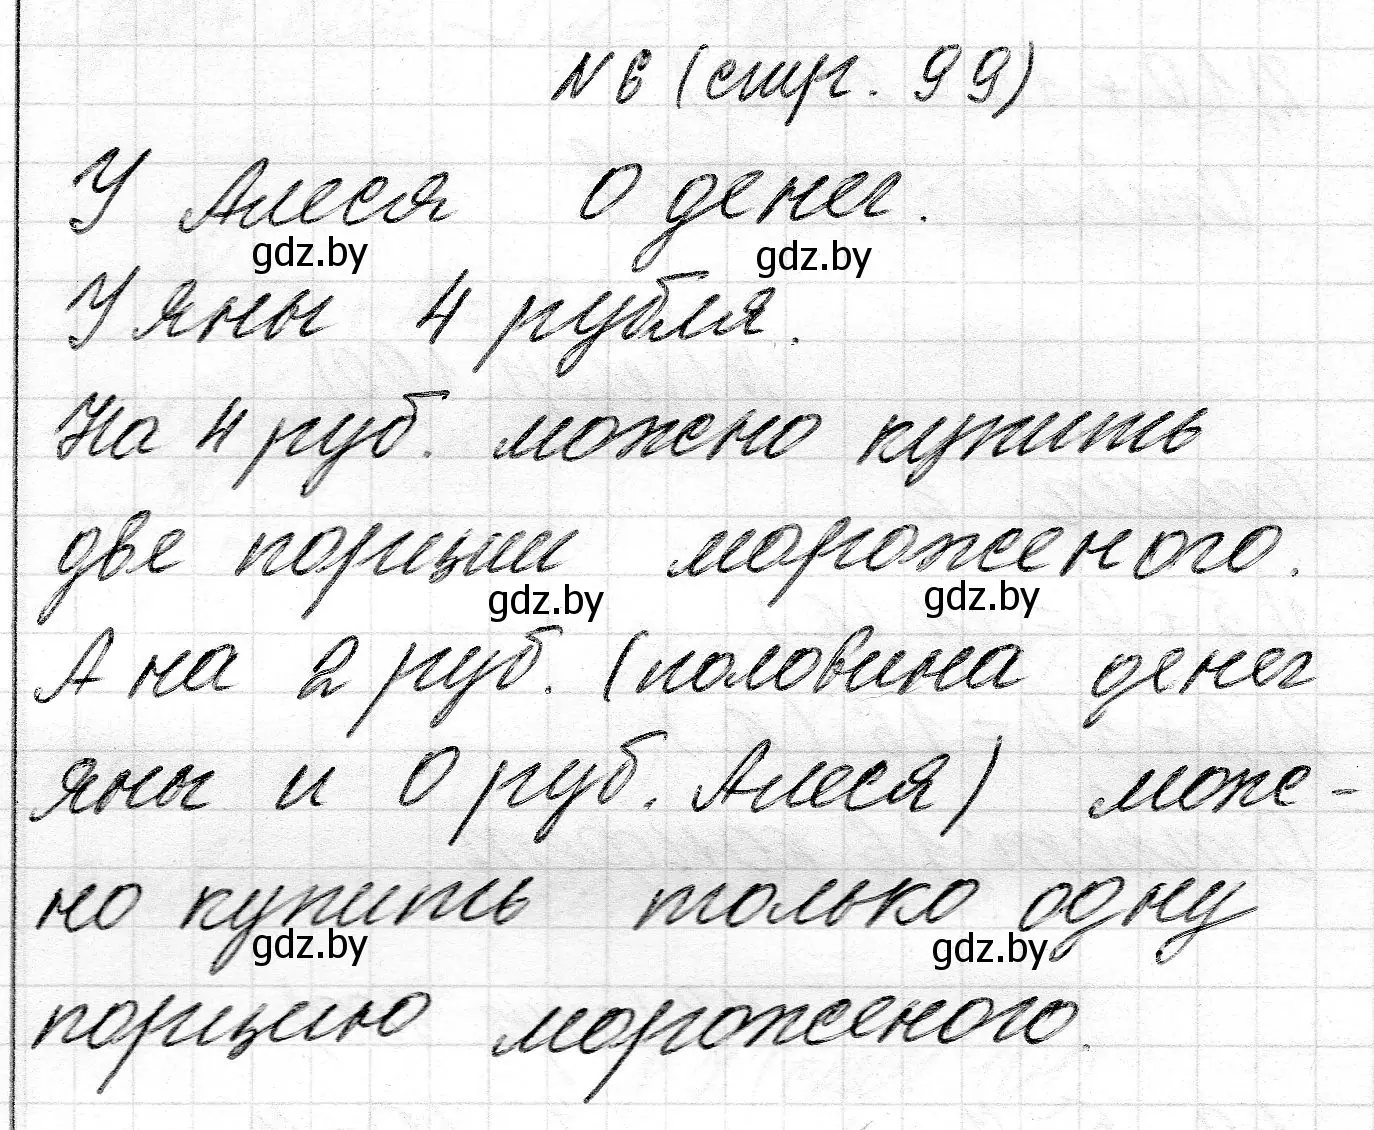 N 6 (стр. 99)
У Алеся 0 денег.
gdz.by gdz.by
У Яны 4 рубля.
На 4 руб. можно купить
две порции мороженого.
gdz.by gdz.by
А на 2 руб. (половина денег
Яны и 0 руб. Алеся) мож-
но купить только одну
gdz.by gdz.by
порцию мороженого.